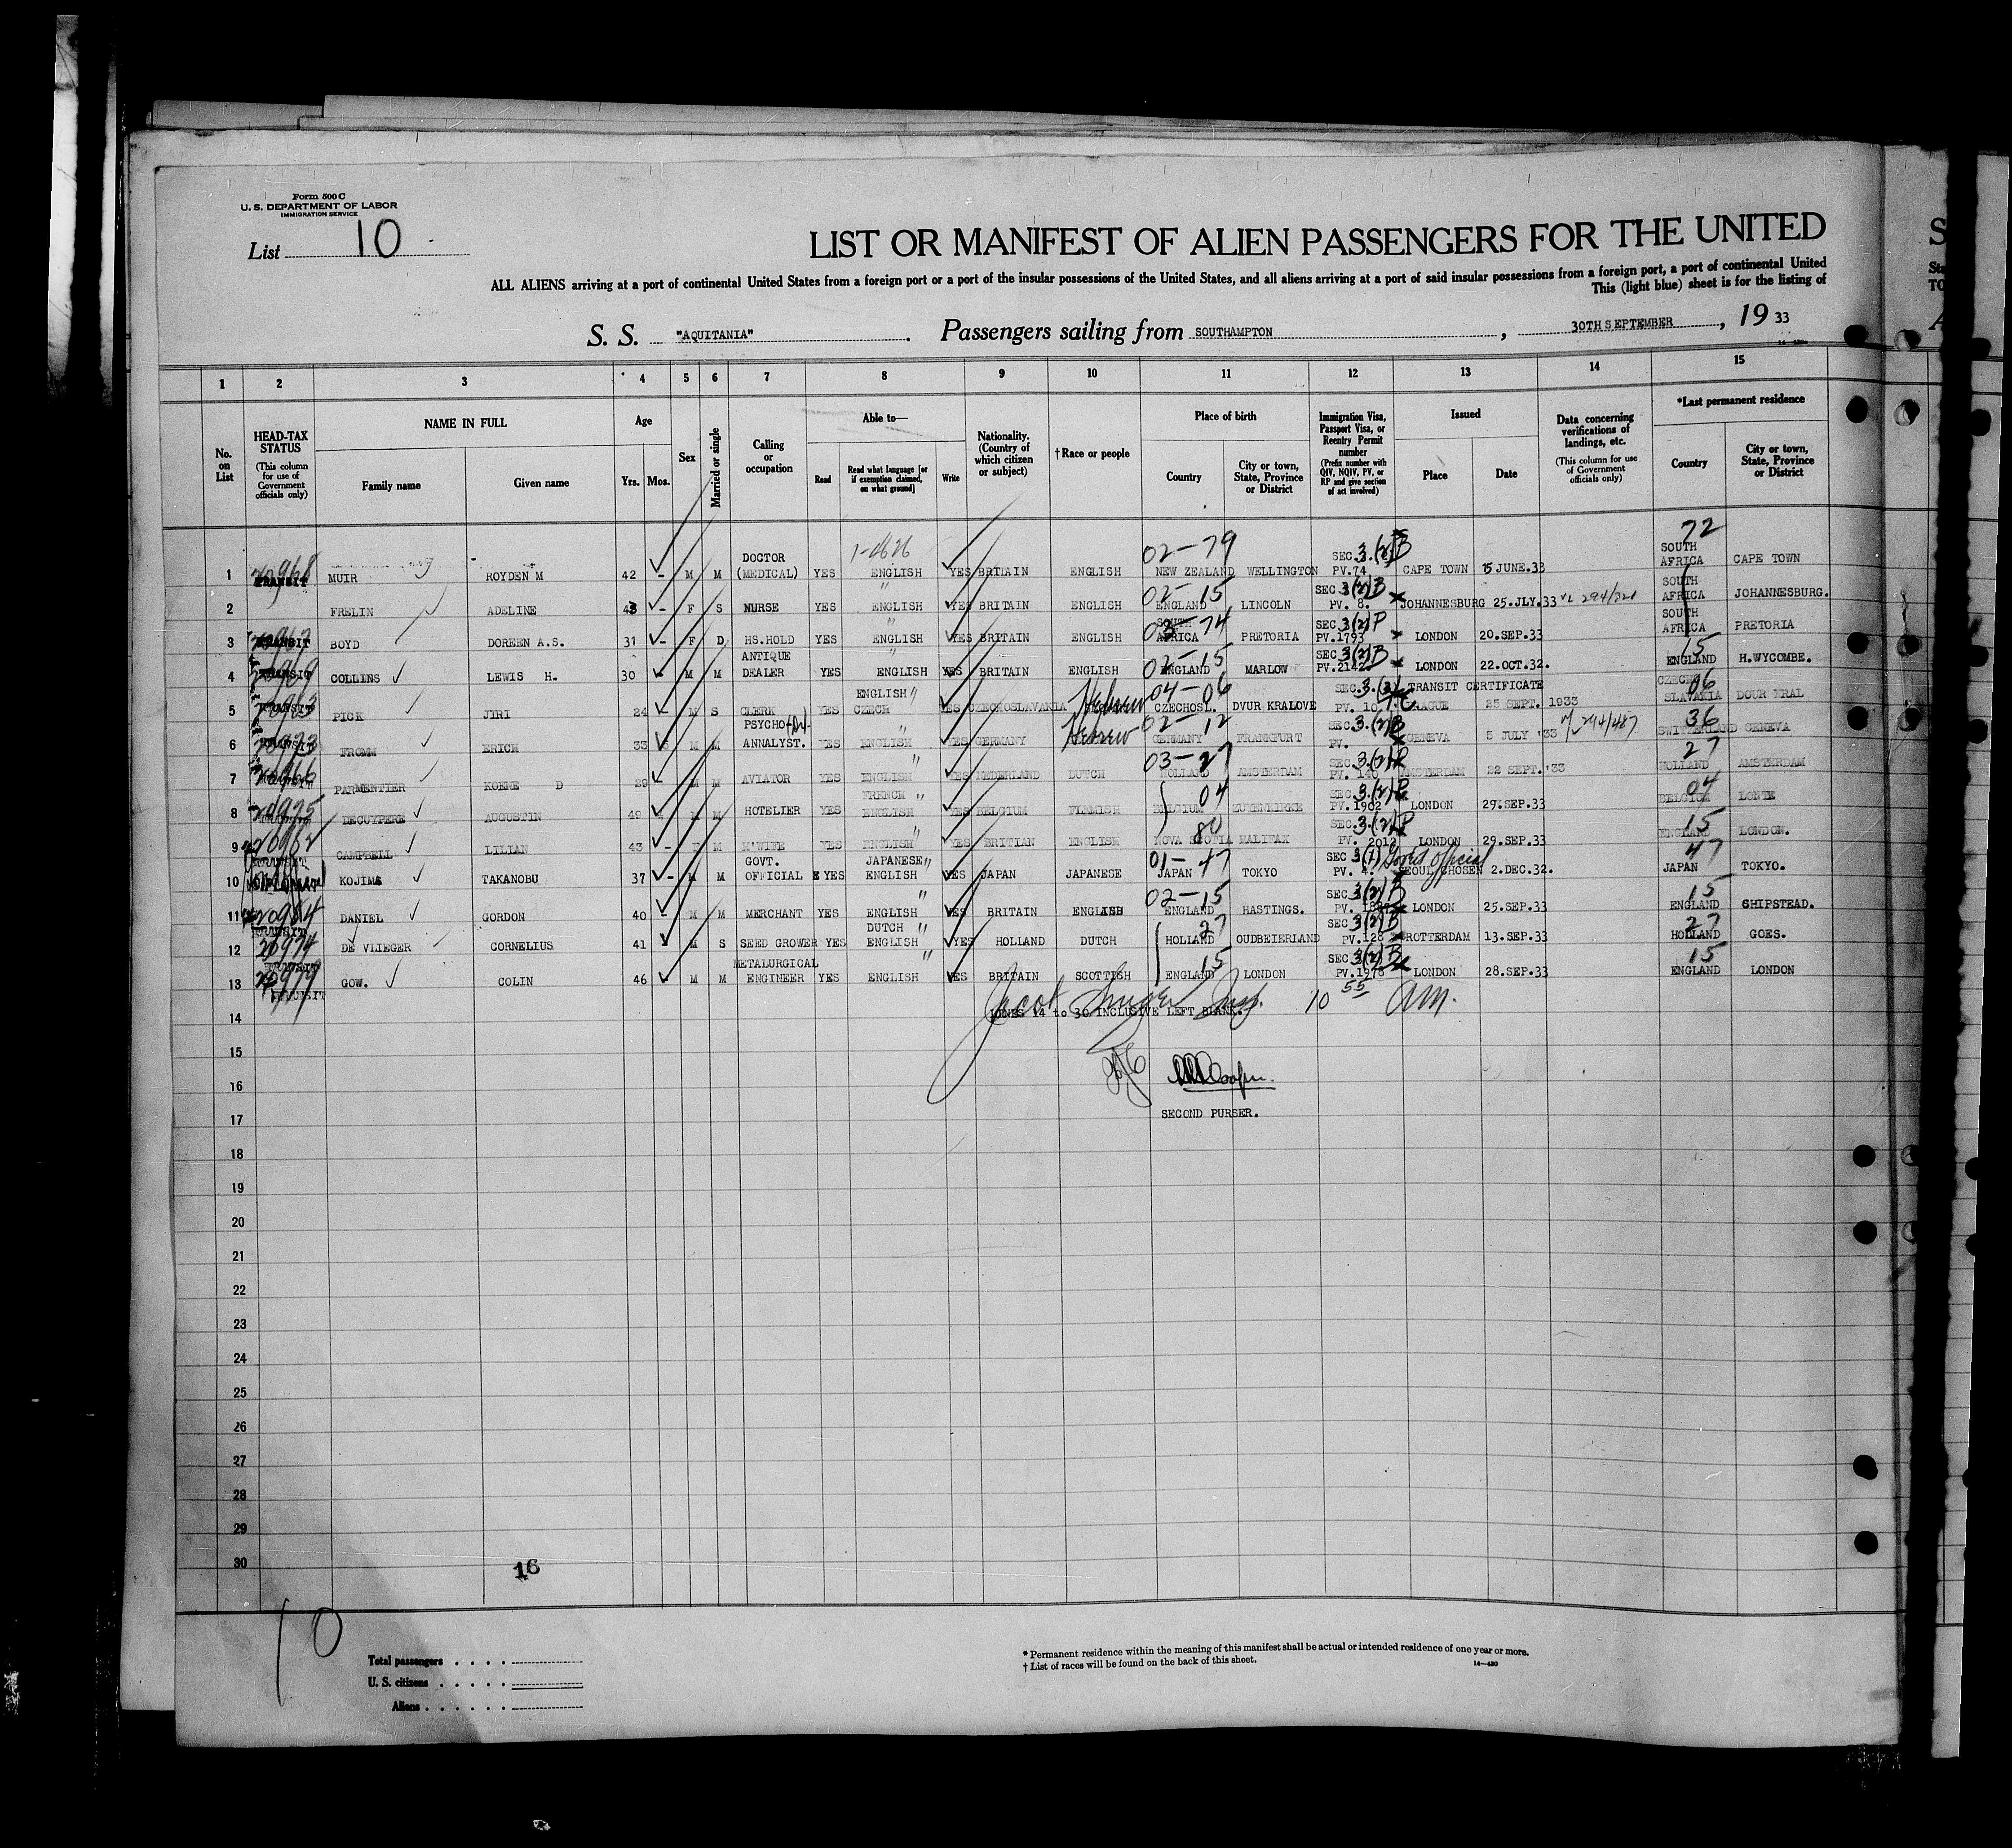 Form 500 C
U. S. DEPARTMENT OF LABOR
IMMIGRATION SERVICE
List 10
LIST OR MANIFEST OF ALIEN PASSENGERS FOR THE UNITED
ALL ALIENS arriving at a port of continental United States from a foreign port or a port of the insular possessions of the United States, and all aliens arriving at a port of said insular possessions from a foreign port, a port of continental United
This (light blue) sheet is for the listing of
S. S. "AQUITANIA" Passengers sailing from SOUTHAMPTON, 30TH SEPTEMBER, 19 33
1 2 3 4 5 6 7 8 9 10 11 12 13 14 15
No. on List
HEAD-TAX STATUS (This column for use of Government officials only)
NAME IN FULL
Family name Given name
Age
Yrs. Mos.
Sex
Married or single
Calling or occupation
Able to—
Read Read what language [or if exemption claimed, on what ground] Write
Nationality. (Country of which citizen or subject)
†Race or people
Place of birth
Country City or town, State, Province or District
Immigration Visa, Passport Visa, or Reentry Permit number (Prefix number with QIV, NQIV, PV, or RP and give section of act involved)
Issued
Place Date
Data concerning verifications of landings, etc. (This column for use of Government officials only)
*Last permanent residence
Country City or town, State, Province or District
1 20968 TRANSIT MUIR ROYDEN M 42 - M M DOCTOR (MEDICAL) YES ENGLISH YES BRITAIN ENGLISH 02-79 NEW ZEALAND WELLINGTON SEC.3.(2)B PV.74 CAPE TOWN 15 JUNE.33 72 SOUTH AFRICA CAPE TOWN
2 FRELIN ADELINE 43 - F S NURSE YES ENGLISH YES BRITAIN ENGLISH 02-15 ENGLAND LINCOLN SEC 3(2)B PV. 8. JOHANNESBURG 25.JLY.33 SOUTH AFRICA JOHANNESBURG.
3 TRANSIT BOYD DOREEN A.S. 31 - F D HS.HOLD YES ENGLISH YES BRITAIN ENGLISH 03-74 SOUTH AFRICA PRETORIA SEC.3(2)P PV.1793 LONDON 20.SEP.33 SOUTH AFRICA PRETORIA
4 TRANSIT COLLINS LEWIS H. 30 - M M ANTIQUE DEALER YES ENGLISH YES BRITAIN ENGLISH 02-15 ENGLAND MARLOW SEC 3(2)B PV.2142 LONDON 22.OCT.32. 15 ENGLAND H.WYCOMBE.
5 TRANSIT PICK JIRI 24 - M S CLERK YES ENGLISH CZECH YES CZECHOSLOVAKIA Hebrew 04-06 CZECHOSL. DVUR KRALOVE SEC.3.(3) PV. 10 TRANSIT CERTIFICATE PRAGUE 25 SEPT. 1933 06 CZECHO SLAVAKIA DOUR KRAL
6 TRANSIT FROMM ERICH 33 M M PSYCHO ANNALYST. YES ENGLISH YES GERMANY Hebrew 02-12 GERMANY FRANKFURT SEC.3.(2)B PV. GENEVA 5 JULY '33 294/487 36 SWITZERLAND GENEVA
7 PARMENTIER KOENE D 29 M M AVIATOR YES ENGLISH YES NEDERLAND DUTCH 03-27 HOLLAND AMSTERDAM SEC.3.(2)P PV. 140 AMSTERDAM 22 SEPT.'33 27 HOLLAND AMSTERDAM
8 20975 DECUYPERE AUGUSTIN 49 M M HOTELIER YES FRENCH ENGLISH YES BELGIUM FLEMISH 04 BELGIUM SEC.3.(2)P PV.1902 LONDON 29.SEP.33 04 BELGIUM
9 20962 TRANSIT CAMPBELL LILIAN 43 - F M H'WIFE YES ENGLISH YES BRITIAN ENGLISH 80 NOVA SCOTIA HALIFAX SEC.3.(2)P PV. 2012 LONDON 29.SEP.33 15 ENGLAND LONDON.
10 KOJIMA TAKANOBU 37 - M M GOVT. OFFICIAL YES JAPANESE ENGLISH YES JAPAN JAPANESE 01-47 JAPAN TOKYO SEC 3(1) Govt Official PV. 4. SEOUL CHOSEN 2.DEC.32. 47 JAPAN TOKYO.
11 20984 TRANSIT DANIEL GORDON 40 - M M MERCHANT YES ENGLISH YES BRITAIN ENGLISH 02-15 ENGLAND HASTINGS. SEC.3(2)B PV. LONDON 25.SEP.33 15 ENGLAND SHIPSTEAD.
12 20974 TRANSIT DE VLIEGER CORNELIUS 41 M S SEED GROWER YES DUTCH ENGLISH YES HOLLAND DUTCH 27 HOLLAND OUDBEIERLAND SEC 3(2)B PV.128 ROTTERDAM 13.SEP.33 27 HOLLAND GOES.
13 20979 TRANSIT GOW. COLIN 46 M M METALURGICAL ENGINEER YES ENGLISH YES BRITAIN SCOTTISH 15 ENGLAND LONDON SEC 3(2)B PV.1978 LONDON 28.SEP.33 15 ENGLAND LONDON
14 LINES 14 to 30 INCLUSIVE LEFT BLANK. 10 55 AM.
15
16
17 SECOND PURSER.
18
19
20
21
22
23
24
25
26
27
28
29
30
16
10
Total passengers
U. S. citizens
Aliens
* Permanent residence within the meaning of this manifest shall be actual or intended residence of one year or more.
† List of races will be found on the back of this sheet.
14—430